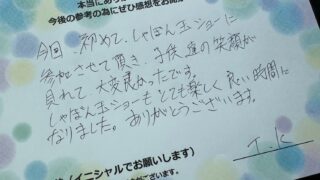 本当にあり
今後の参考の為にぜひ感想をお聞
今回、初めて、しゃぼん玉ショーに
参加させて頂き、子供達の笑顔が
見れて、大変良かったです。
しゃぼん玉ショーもとても楽しく良い時間に
なりました。ありがとうございます。
T.K
(イニシャルでお願いします)
ございます。